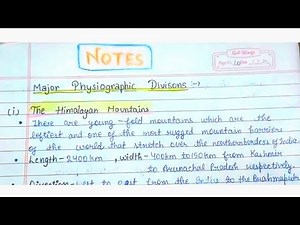 NOTES
Major Physiographic Divisons :->
(i) The Himalayan Mountains
• There are young-fold mountains which are the
loftiest and one of the most rugged mountain barriers
of the world that stretch over the northernborders of India.
• Length-2400km, width-400km to 150km from Kashmir
to Arunachal Pradesh respectively.
west to east from the Indus to the Brahmaputra